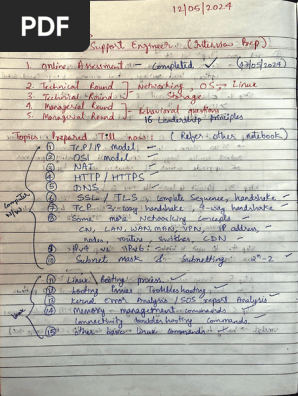 PDF
12/05/2024
Support Engineer (Interview Prep)
1. Online Assessment - Completed ✓ (03/05/2024)
2. Technical Round - Networking, OS → Linux
3. Technical Round - Storage
4. Managerial Round - Behavioral questions
5. Managerial Round 16 Leadership principles
Topics Prepared Till now: (Refer other notebook)
Computer
① TCP/IP model
② OSI model
③ NAT
④ HTTP / HTTPS
⑤ DNS
⑥ SSL / TLS Complete Sequence, handshake
⑦ TCP 3-way handshake, 4-way handshake
⑧ Some more Networking concepts
CN, LAN, WAN, MAN, VPN, IP address,
nodes, routers, switches, CDN
⑨ IPv4 vs IPv6
⑩ Subnet Mask & Subnetting 2^n-2
Linux
⑪ Linux Booting process
⑫ booting Issues Troubleshooting
⑬ kernel error Analysis / SOS report Analysis
⑭ Memory management commands
connectivity troubleshooting commands
⑮ other basic Linux commands